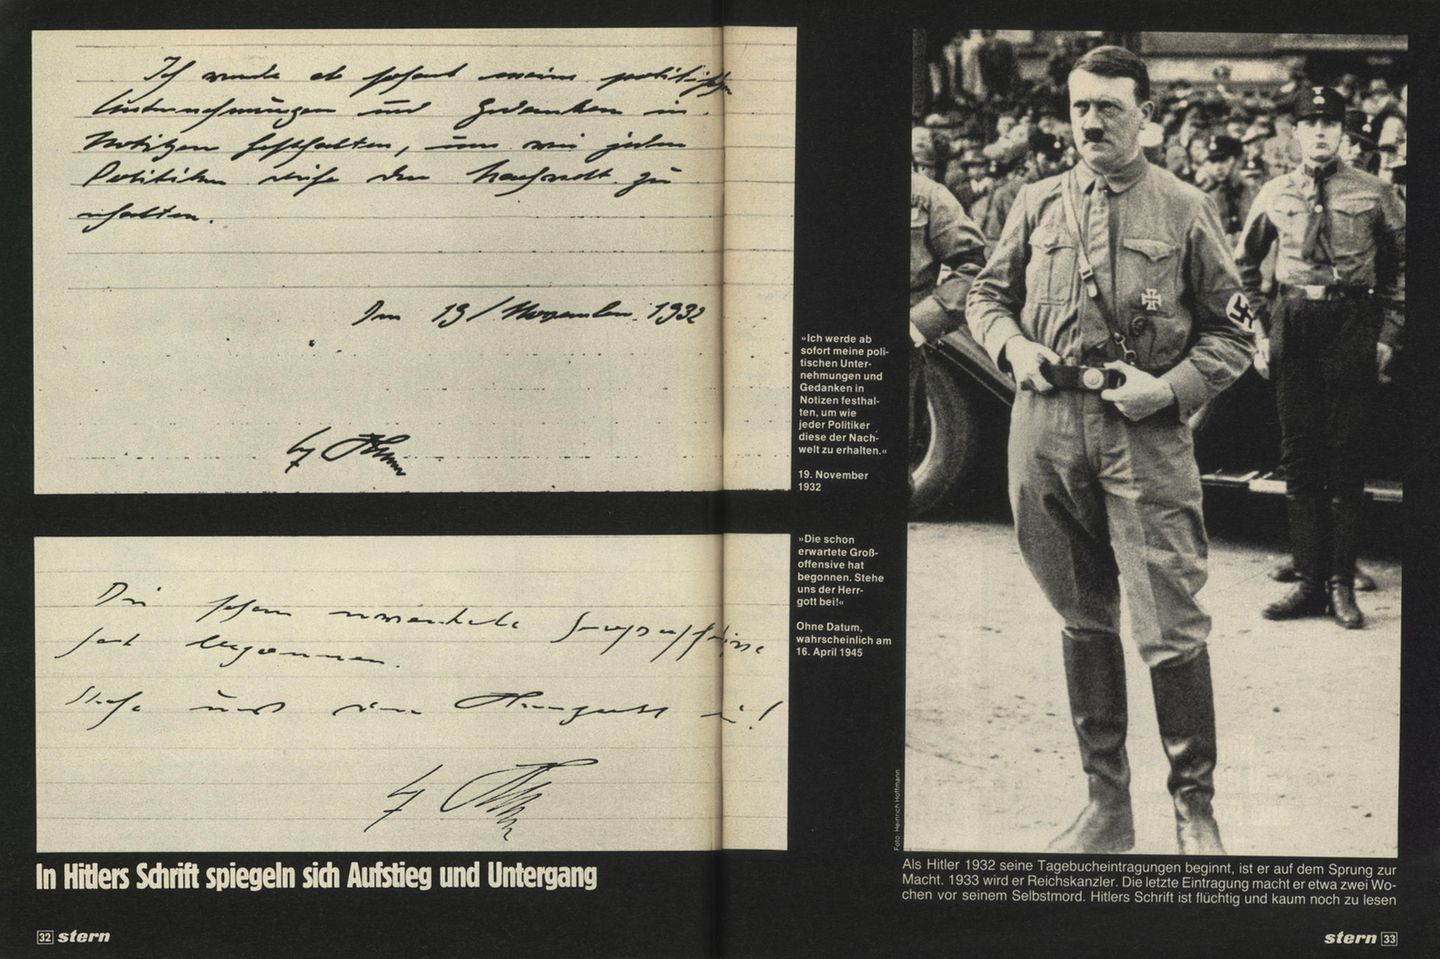 Ich werde ab sofort meine politischen
Unternehmungen und Gedanken in
Notizen festhalten, um wie jeder
Politiker diese der Nachwelt zu
erhalten.
Den 19/November 1932
»Ich werde ab
sofort meine poli-
tischen Unter-
nehmungen und
Gedanken in
Notizen festhal-
ten, um wie
jeder Politiker
diese der Nach-
welt zu erhalten.«
19. November
1932
Die schon erwartete Großoffensive
hat begonnen.
Stehe uns der Herrgott bei!
»Die schon
erwartete Groß-
offensive hat
begonnen. Stehe
uns der Herr-
gott bei!«
Ohne Datum,
wahrscheinlich am
16. April 1945
In Hitlers Schrift spiegeln sich Aufstieg und Untergang
32 stern
Foto: Heinrich Hoffmann
Als Hitler 1932 seine Tagebucheintragungen beginnt, ist er auf dem Sprung zur
Macht. 1933 wird er Reichskanzler. Die letzte Eintragung macht er etwa zwei Wo-
chen vor seinem Selbstmord. Hitlers Schrift ist flüchtig und kaum noch zu lesen
stern 33